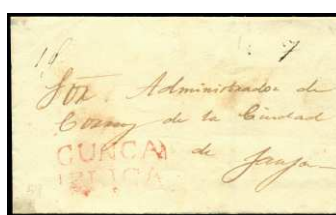 16 7
Sor. Administrador de
Correos de la Ciudad
de Jauja
GUNCA